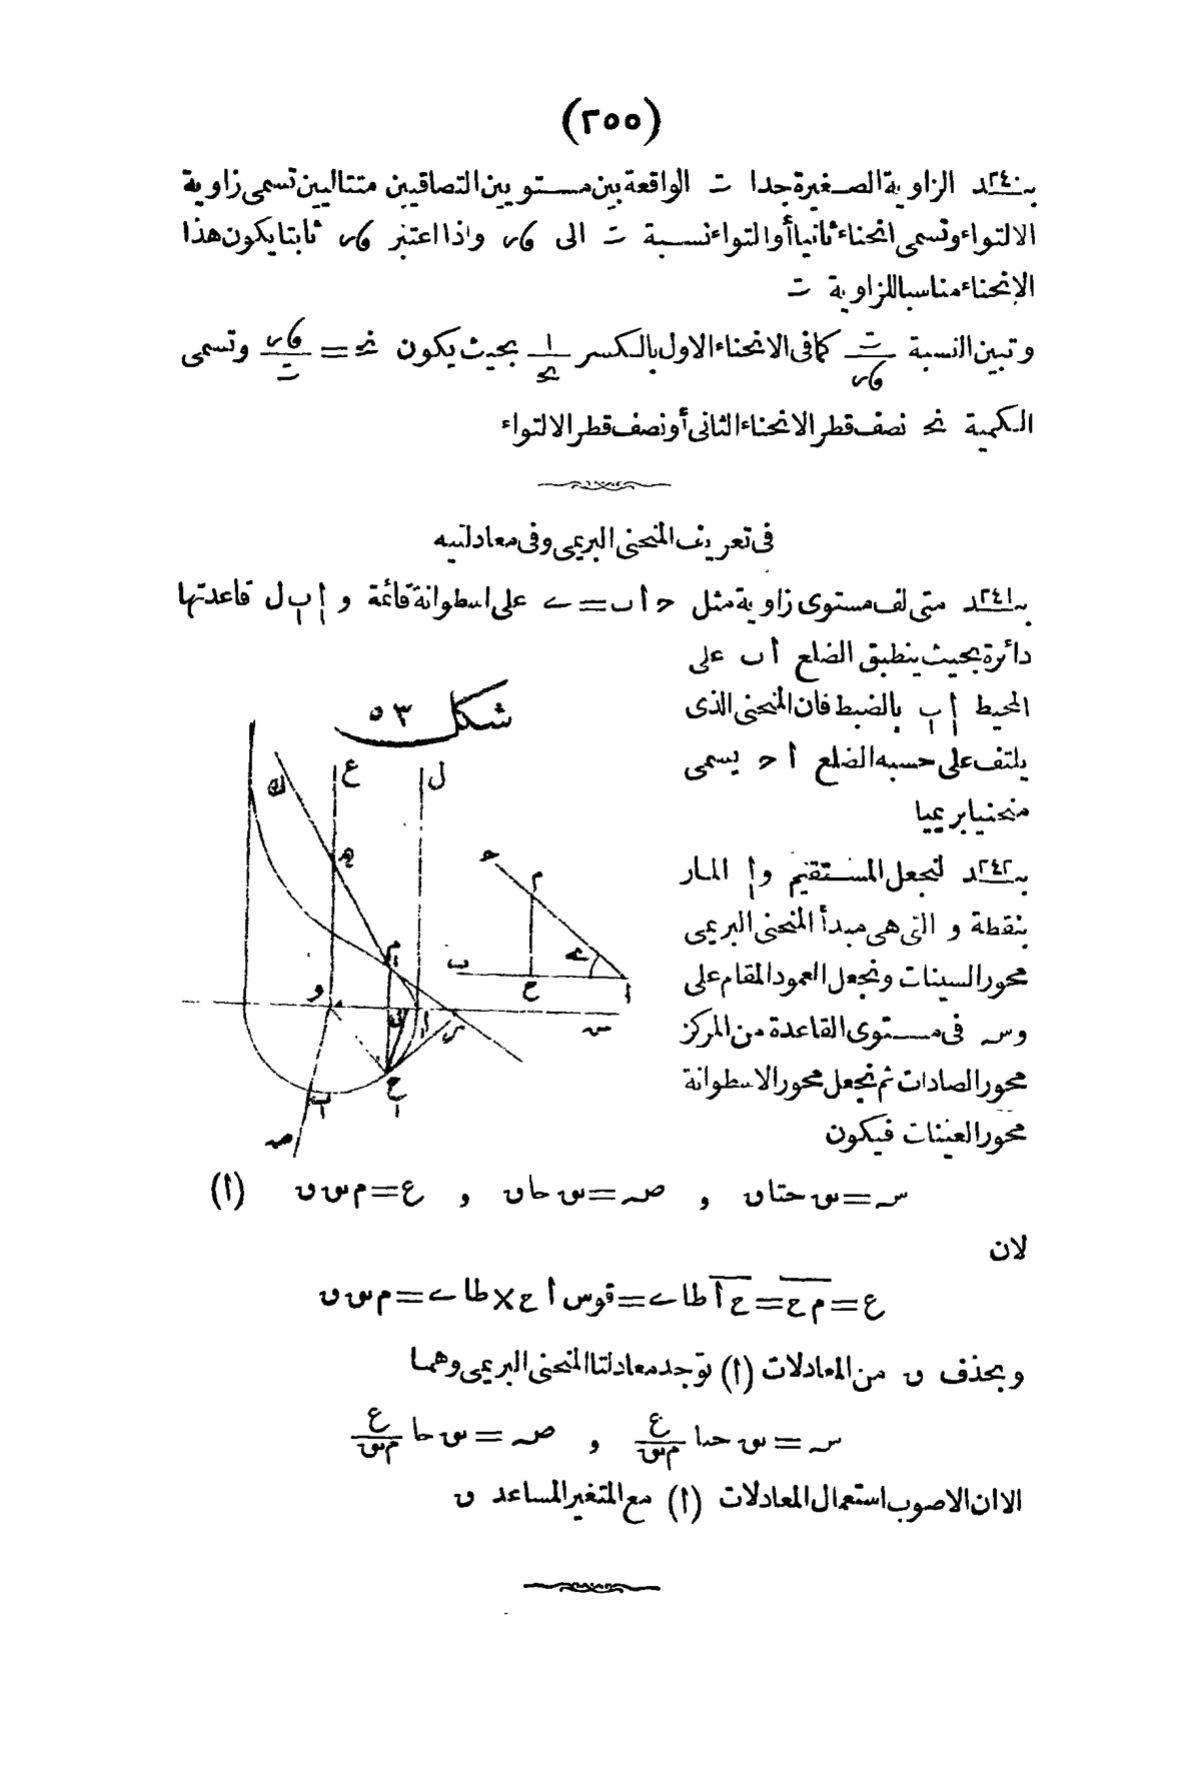 (٢٥٥)
بند ٢٤٠ الزاوية الصغيرة جدا ت الواقعة بين مستويين التصاقيين متتاليين تسمى زاوية
الالتواء وتسمى انحناء ثانيا أو التواء نسبة ت الى وس واذا اعتبر وس ثابتا يكون هذا
الانحناء مناسبا للزاوية ت
وتبين النسبة ت/وس كما فى الانحناء الاول بالكسر ١/نح بحيث يكون نح = وس/ت وتسمى
الكمية نح نصف قطر الانحناء الثانى أو نصف قطر الالتواء
فى تعريف المنحنى البريمى وفى معادلتيه
بند ٢٤١ متى لف مستوى زاوية مثل حاب = ى على اسطوانة قائمة و اب ل قاعدتها
دائرة بحيث ينطبق الضلع اب على
المحيط اب بالضبط فان المنحنى الذى
يلتف على حسبه الضلع اح يسمى
منحنيا بريميا
شكل ٥٣
بند ٢٤٢ لنجعل المستقيم وا المار
بنقطة و التى هى مبدأ المنحنى البريمى
محور السينات ونجعل العمود المقام على
وس فى مستوى القاعدة من المركز
محور الصادات ثم نجعل محور الاسطوانة
محور العينات فيكون
س = س حتاں و صہ = س حاں و ع = م س ں (١)
لان
ع = م ح = ح ا طاى = قوس ا ح × طاى = م س ں
وبحذف ں من المعادلات (١) توجد معادلتا المنحنى البريمى وهما
س = س حتا ع/م س و صہ = س حا ع/م س
الا ان الاصوب استعمال المعادلات (١) مع المتغير المساعد ں